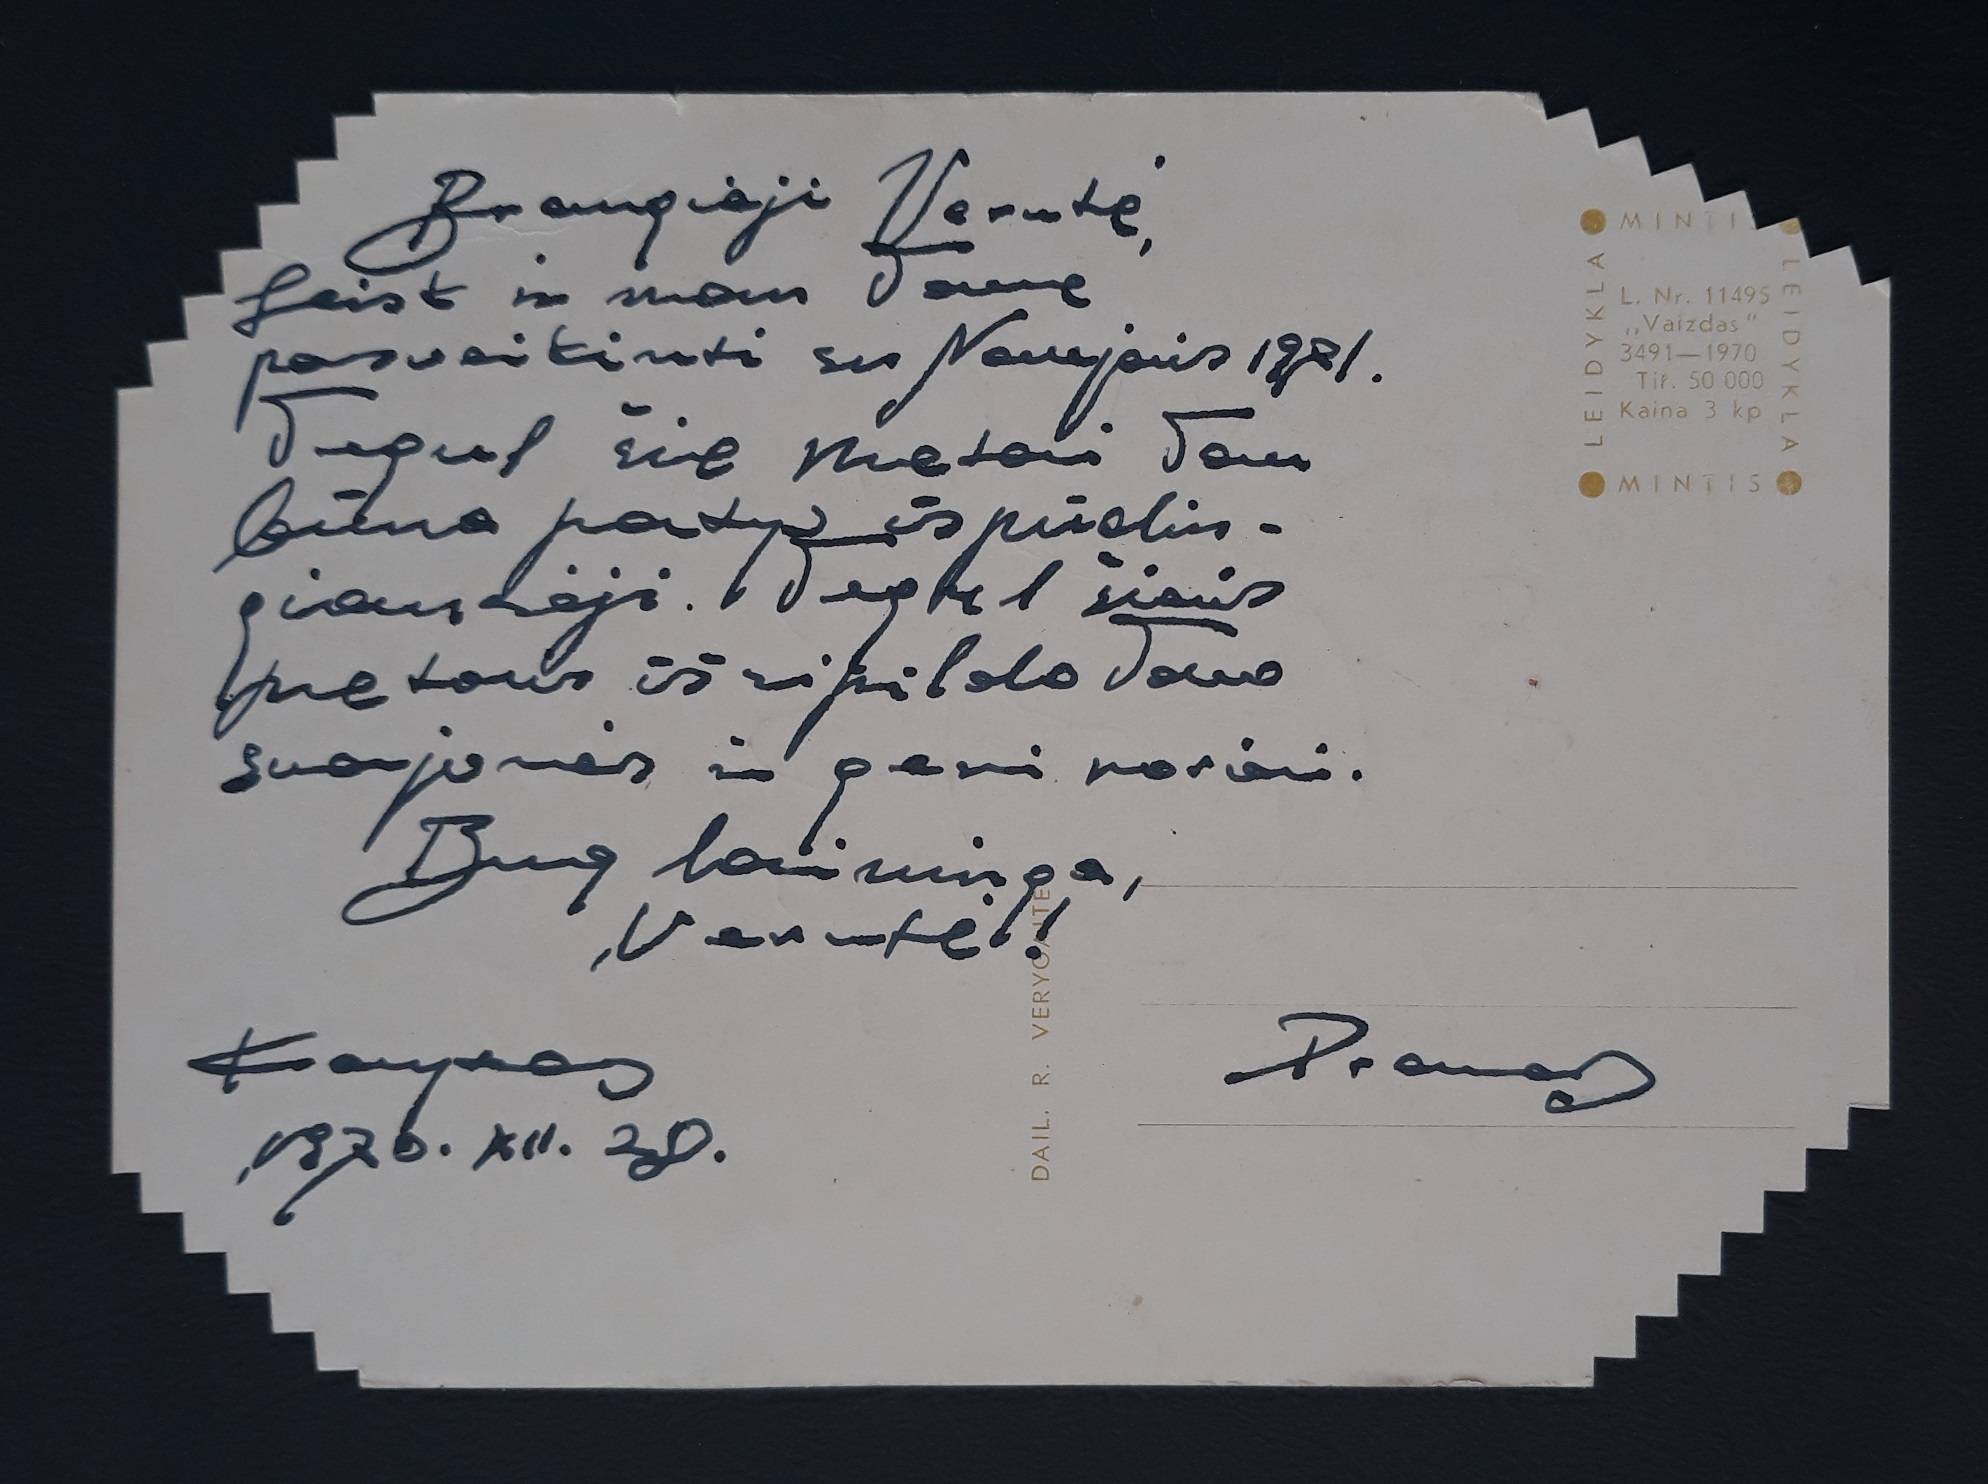 Brangiaji Verutė,
Leisk ir man Tave
pasveikinti su Naujais 1971.
Tegul šie metai Tau
būna patys išpūdin-
giausieji. Tegul šiais
metais išsipildo Tavo
svajonės ir geri norai.
Buq laiminga,
Verutė!
Kaunas
1970. XII. 28.
Pranas
MINTIS
LEIDYKLA
LEIDYKLA
L. Nr. 11495
„Vaizdas"
3491—1970
Tir. 50 000
Kaina 3 kp
MINTIS
DAIL. R. VERYGAITĖ